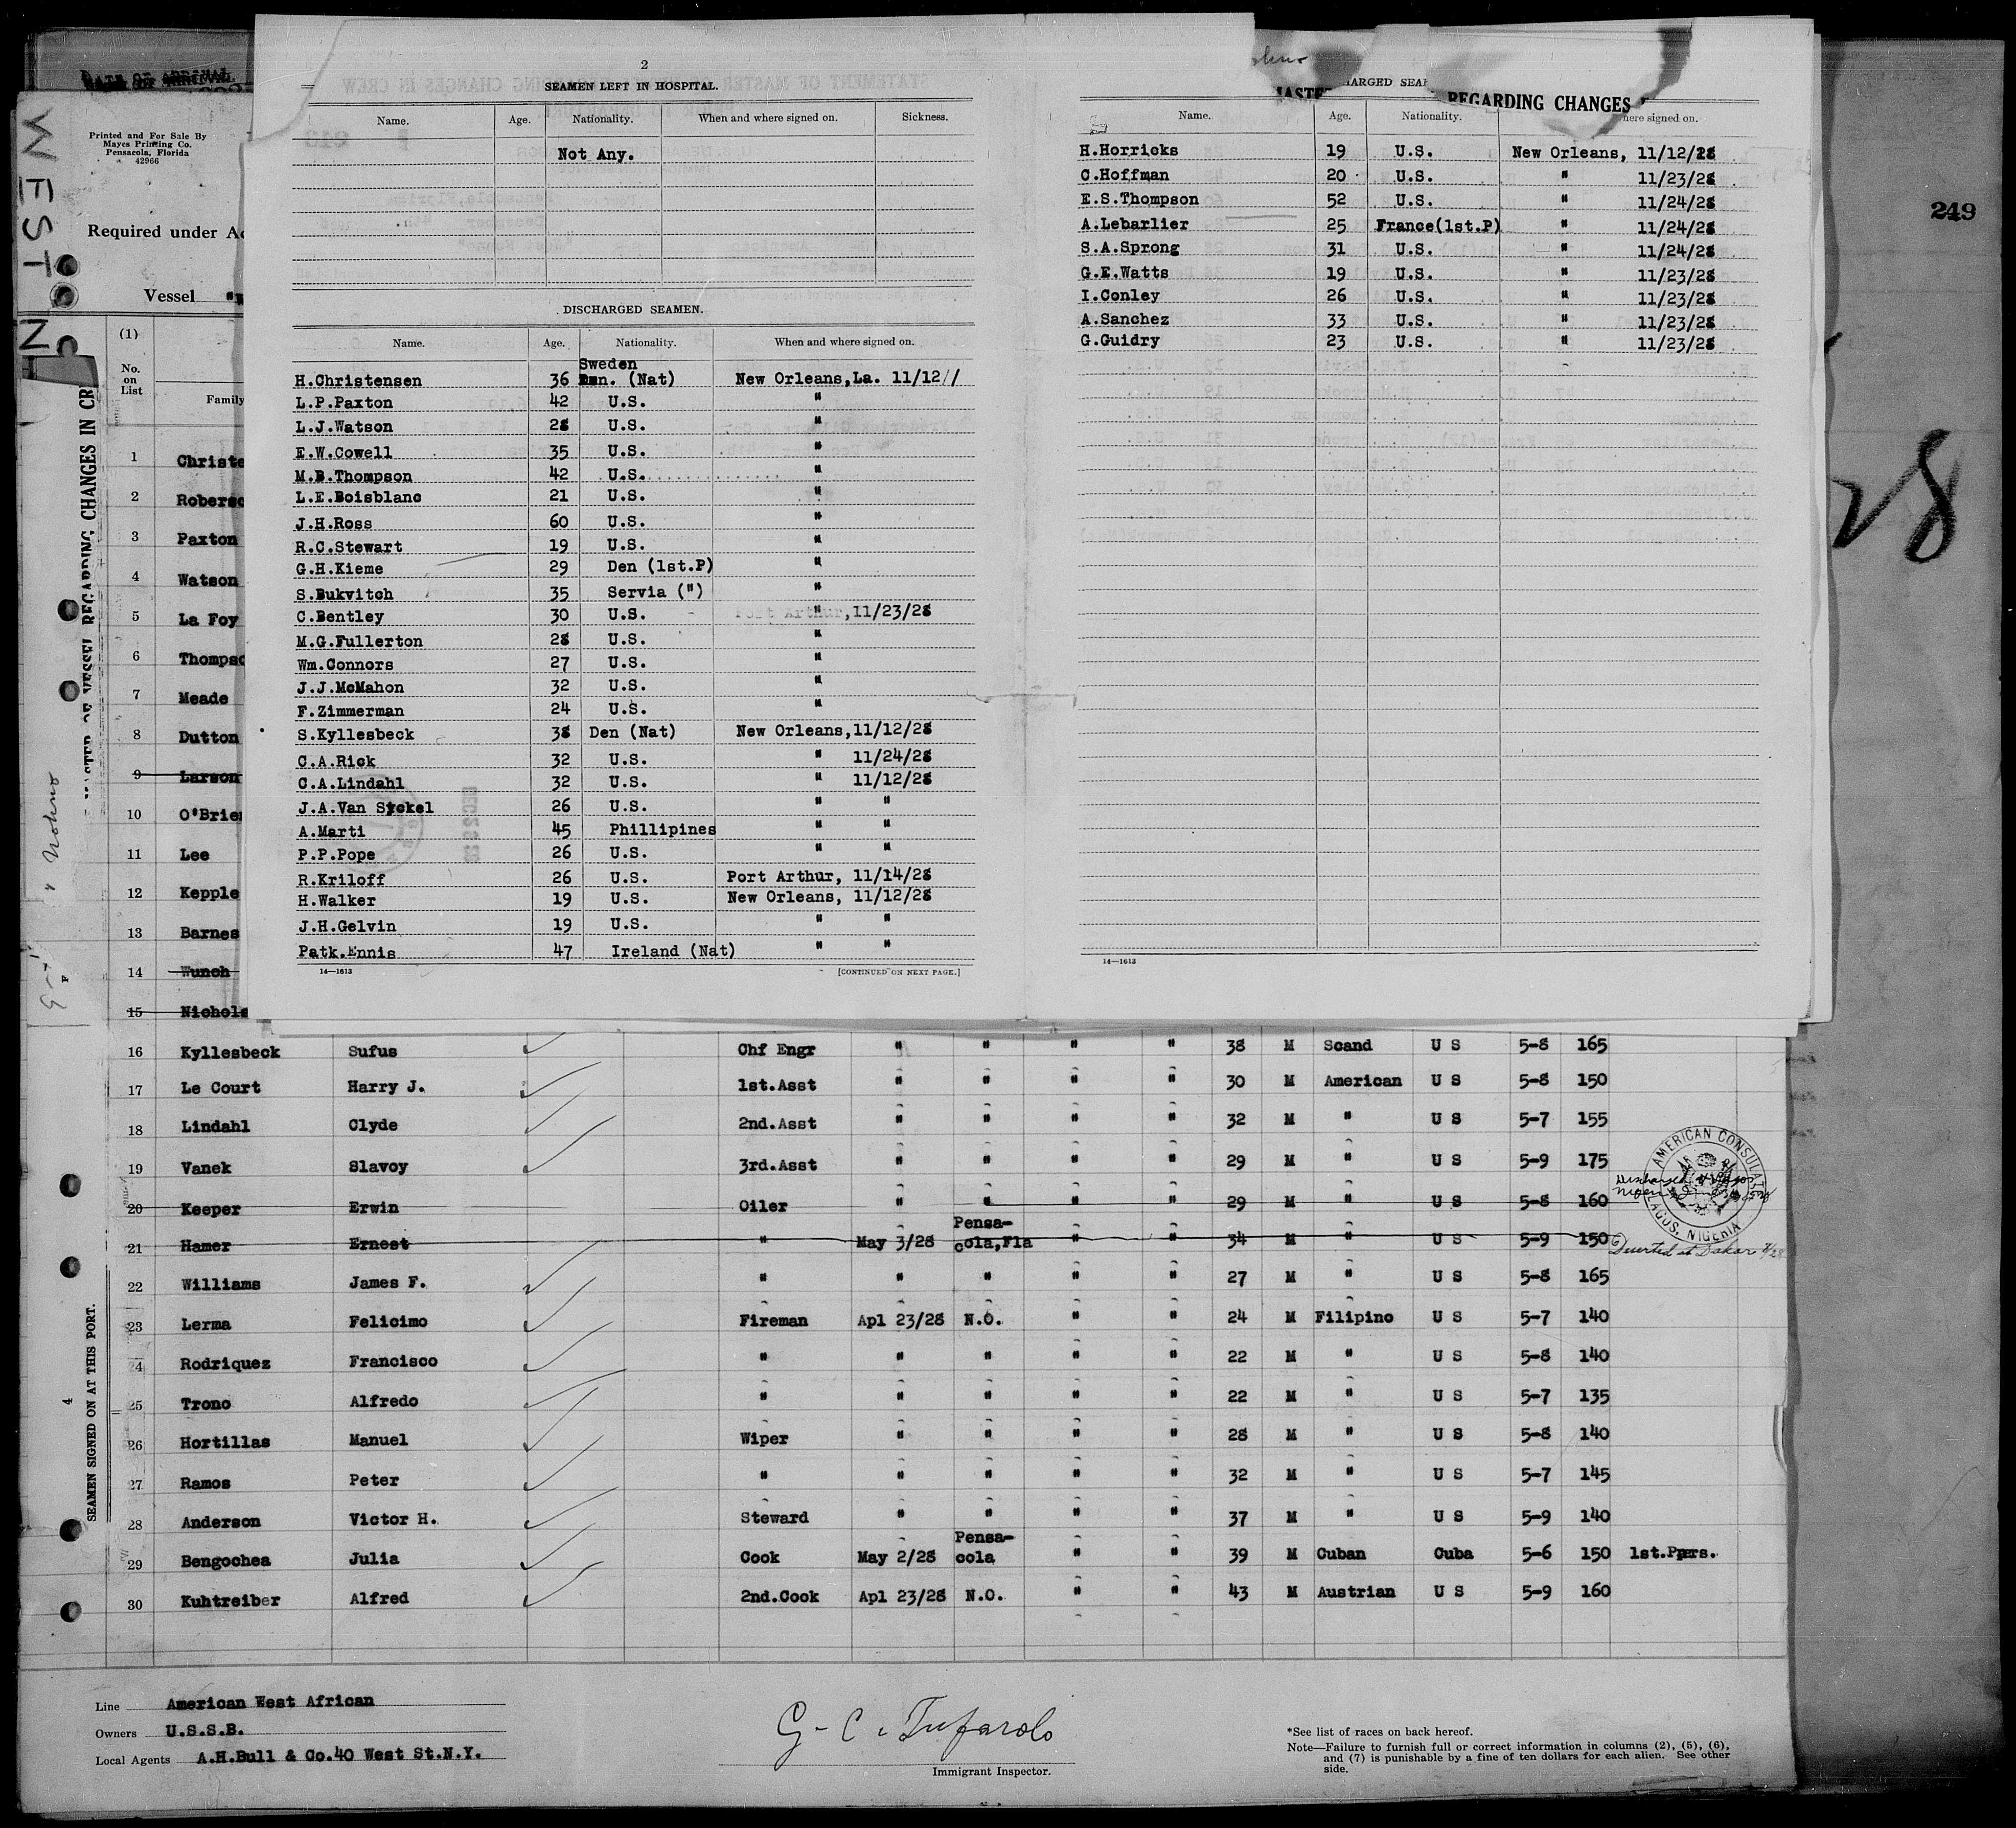 DATE OF ARRIVAL
Printed and For Sale By
Mayes Printing Co.
Pensacola, Florida
42966
Required under
Vessel
WEST
249
28
REGARDING CHANGES IN
(1)
No.
on
List
Family
1 Christe
2 Roberso
3 Paxton
4 Watson
5 La Foy
6 Thompso
7 Meade
8 Dutton
9 Larson
10 O'Brie
11 Lee
12 Kepple
13 Barnes
14 Wunch
15 Nichols
2
SEAMEN LEFT IN HOSPITAL.
Name. Age. Nationality. When and where signed on. Sickness.
Not Any.
DISCHARGED SEAMEN.
Name. Age. Nationality. When and where signed on.
Sweden
H.Christensen 36 (Nat) New Orleans,La. 11/12//
L.P.Paxton 42 U.S. "
L.J.Watson 28 U.S. "
E.W.Cowell 35 U.S. "
M.B.Thompson 42 U.S. "
L.E.Boisblanc 21 U.S. "
J.H.Ross 60 U.S. "
R.C.Stewart 19 U.S. "
G.H.Kieme 29 Den (1st.P) "
S.Bukvitch 35 Servia (") "
C.Bentley 30 U.S. " ,11/23/28
M.G.Fullerton 28 U.S. "
Wm.Connors 27 U.S. "
J.J.McMahon 32 U.S. "
F.Zimmerman 24 U.S. "
S.Kyllesbeck 38 Den (Nat) New Orleans,11/12/28
C.A.Rick 32 U.S. " 11/24/28
C.A.Lindahl 32 U.S. " 11/12/28
J.A.Van Syckel 26 U.S. " "
A.Marti 45 Phillipines " "
P.P.Pope 26 U.S. " "
R.Kriloff 26 U.S. Port Arthur, 11/14/28
H.Walker 19 U.S. New Orleans, 11/12/28
J.H.Gelvin 19 U.S. " "
Patk.Ennis 47 Ireland (Nat) " "
14—1613 [CONTINUED ON NEXT PAGE.]
REGARDING CHANGES
Name. Age. Nationality. where signed on.
H.Horricks 19 U.S. New Orleans, 11/12/28
C.Hoffman 20 U.S. " 11/23/28
E.S.Thompson 52 U.S. " 11/24/28
A.Lebarlier 25 France(1st.P) " 11/24/28
S.A.Sprong 31 U.S. " 11/24/28
G.E.Watts 19 U.S. " 11/23/28
I.Conley 26 U.S. " 11/23/28
A.Sanchez 33 U.S. " 11/23/28
G.Guidry 23 U.S. " 11/23/28
14—1613
16 Kyllesbeck Sufus Chf Engr " " " " 38 M Scand U S 5-8 165
17 Le Court Harry J. 1st.Asst " " " " 30 M American U S 5-8 150
18 Lindahl Clyde 2nd.Asst " " " " 32 M " U S 5-7 155
19 Vanek Slavoy 3rd.Asst " " " " 29 M " U S 5-9 175
20 Keeper Erwin Oiler " " " " 29 M " U S 5-8 160
AMERICAN CONSULATE LAGOS, NIGERIA
21 Hamer Ernest " May 3/28 Pensa-
cola,Fla " " 34 M " U S 5-9 150 Deserted at Dakar
22 Williams James F. " " " " " 27 M " U S 5-8 165
23 Lerma Felicimo Fireman Apl 23/28 N.O. " " 24 M Filipino U S 5-7 140
24 Rodriquez Francisco " " " " " 22 M " U S 5-8 140
25 Trono Alfredo " " " " " 22 M " U S 5-7 135
26 Hortillas Manuel Wiper " " " " 28 M " U S 5-8 140
27 Ramos Peter " " " " " 32 M " U S 5-7 145
28 Anderson Victor H. Steward " " " " 37 M " U S 5-9 140
29 Bengochea Julia Cook May 2/28 Pensa-
cola " " 39 M Cuban Cuba 5-6 150 1st.Pprs.
30 Kuhtreiber Alfred 2nd.Cook Apl 23/28 N.O. " " 43 M Austrian U S 5-9 160
4
SEAMEN SIGNED ON AT THIS PORT.
Line American West African
Owners U.S.S.B.
Local Agents A.H.Bull & Co.40 West St.N.Y.
G-C. Tufarolo
Immigrant Inspector.
*See list of races on back hereof.
Note—Failure to furnish full or correct information in columns (2), (5), (6),
and (7) is punishable by a fine of ten dollars for each alien. See other
side.